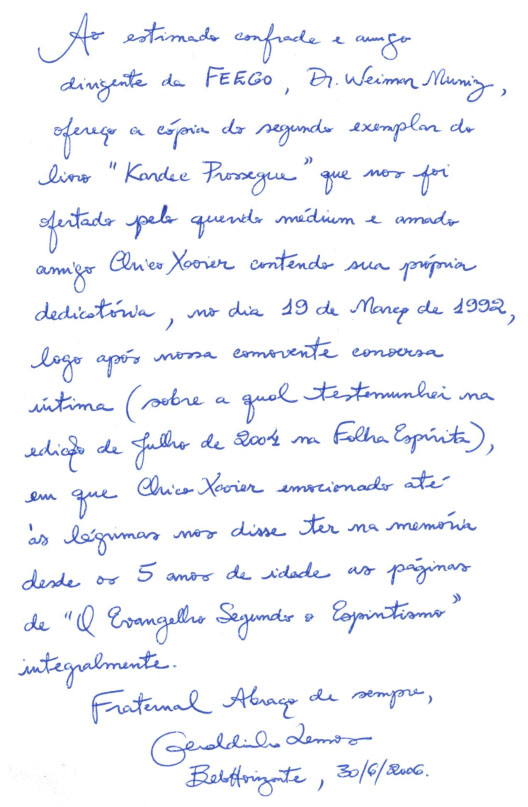 Ao estimado confrade e amigo
dirigente da FEEGO, Dr. Weimar Muniz,
ofereço a cópia do segundo exemplar do
livro "Kardec Prossegue" que nos foi
ofertado pelo querido médium e amado
amigo Chico Xavier contendo sua própria
dedicatória, no dia 19 de Março de 1992,
logo após nossa comovente conversa
íntima (sobre a qual testemunhei na
edição de Julho de 2004 na Folha Espírita),
em que Chico Xavier emocionado até
às lágrimas nos disse ter na memória
desde os 5 anos de idade as páginas
de "O Evangelho Segundo o Espiritismo"
integralmente.
Fraternal Abraço de sempre,
Geraldinho Lemos
Belo Horizonte, 30/6/2006.